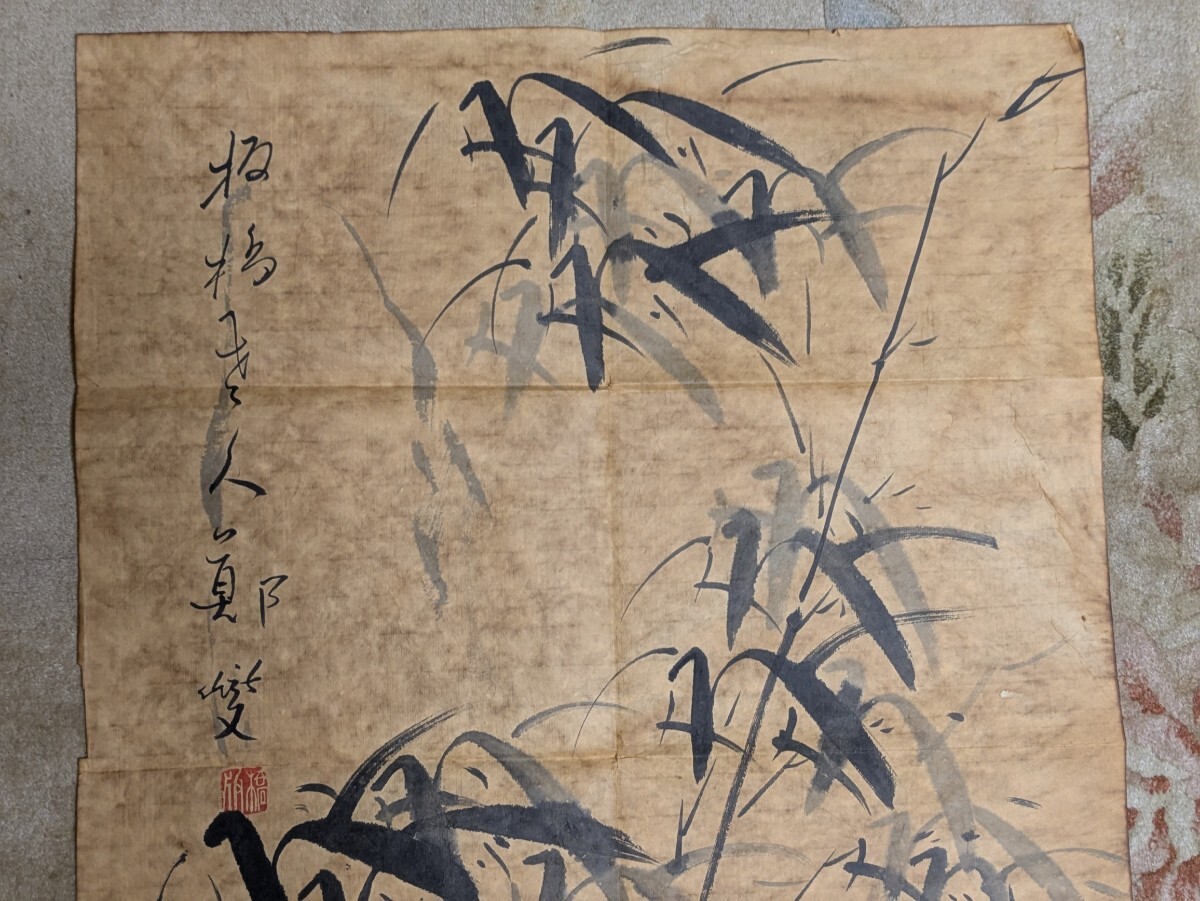 板橋老人鄭燮
橋